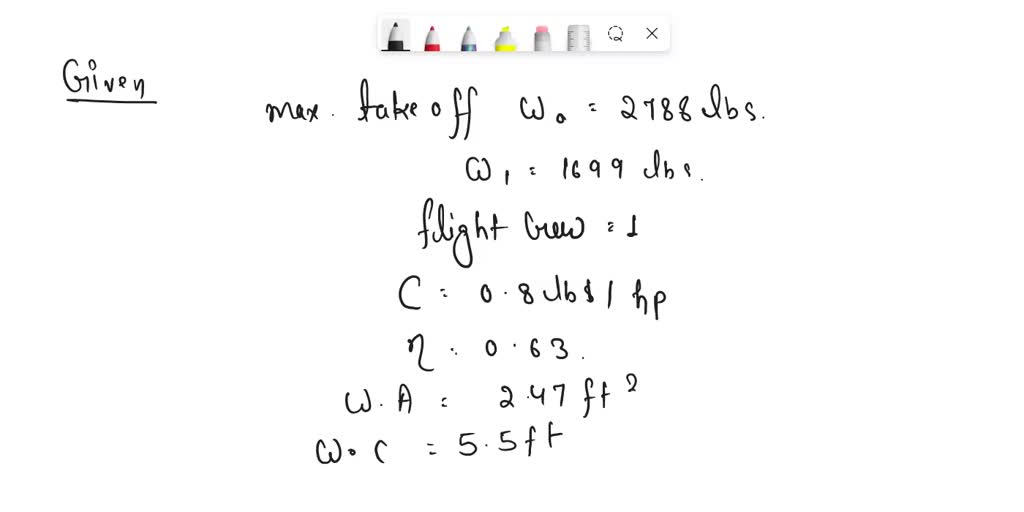 Given
max. take off ω₀ = 2788 lbs.
ω₁ = 1699 lbs.
flight Crew = 1
C = 0.8 lbs / hp
η = 0.63.
W.A = 2.47 ft²
W.C = 5.5 ft